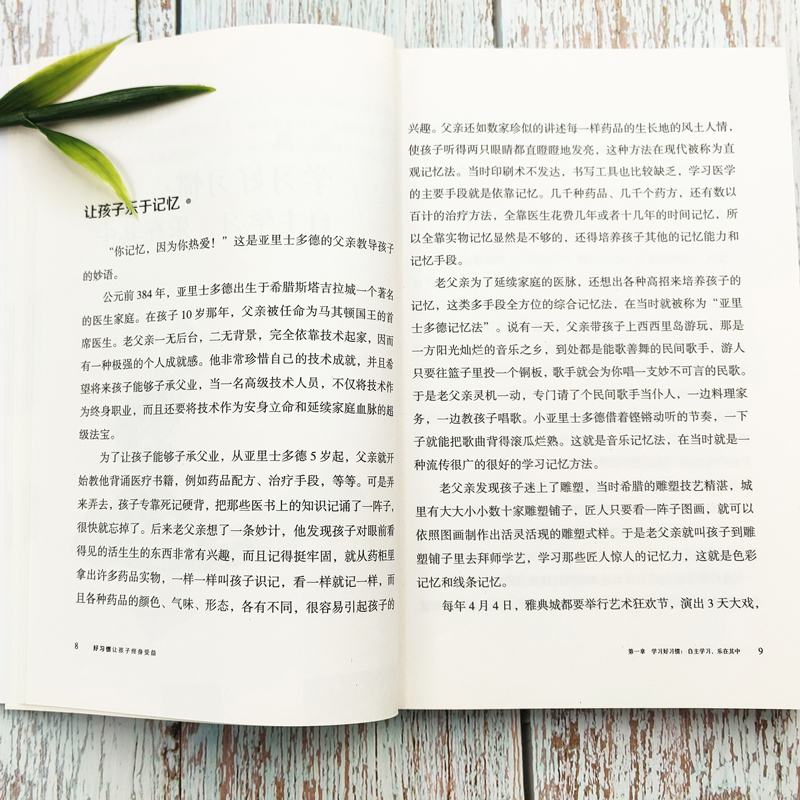 让孩子乐于记忆
“你记忆，因为你热爱！”这是亚里士多德的父亲教导孩子
的妙语。
公元前 384 年，亚里士多德出生于希腊斯塔吉拉城一个著名
的医生家庭。在孩子 10 岁那年，父亲被任命为马其顿国王的首
席医生。老父亲一无后台，二无背景，完全依靠技术起家，因而
有一种极强的个人成就感。他非常珍惜自己的技术成就，并且希
望将来孩子能够子承父业，当一名高级技术人员，不仅将技术作
为终身职业，而且还要将技术作为安身立命和延续家庭血脉的超
级法宝。
为了让孩子能够子承父业，从亚里士多德 5 岁起，父亲就开
始教他背诵医疗书籍，例如药品配方、治疗手段，等等。可是弄
来弄去，孩子专靠死记硬背，把那些医书上的知识记诵了一阵子，
很快就忘掉了。后来老父亲想了一条妙计，他发现孩子对眼前看
得见的活生生的东西非常有兴趣，而且记得挺牢固，就从药柜里
拿出许多药品实物，一样一样叫孩子识记，看一样就记一样，而
且各种药品的颜色、气味、形态，各有不同，很容易引起孩子的
8 好习惯让孩子终身受益
兴趣。父亲还如数家珍似的讲述每一样药品的生长地的风土人情，
使孩子听得两只眼睛都直瞪瞪地发亮，这种方法在现代被称为直
观记忆法。当时印刷术不发达，书写工具也比较缺乏，学习医学
的主要手段就是依靠记忆。几千种药品、几千个药方，还有数以
百计的治疗方法，全靠医生花费几年或者十几年的时间记忆，所
以全靠实物记忆显然是不够的，还得培养孩子其他的记忆能力和
记忆手段。
老父亲为了延续家庭的医脉，还想出各种高招来培养孩子的
记忆，这类多手段全方位的综合记忆法，在当时就被称为“亚里
士多德记忆法”。说有一天，父亲带孩子上西西里岛游玩，那是
一方阳光灿烂的音乐之乡，到处都是能歌善舞的民间歌手，游人
只要往篮子里投一个铜板，歌手就会为你唱一支妙不可言的民歌。
于是老父亲灵机一动，专门请了个民间歌手当仆人，一边料理家
务，一边教孩子唱歌。小亚里士多德借着铿锵动听的节奏，一下
子就能把歌曲背得滚瓜烂熟。这就是音乐记忆法，在当时就是一
种流传很广的很好的学习记忆方法。
老父亲发现孩子迷上了雕塑，当时希腊的雕塑技艺精湛，城
里有大大小小数十家雕塑铺子，匠人只要看一阵子图画，就可以
依照图画制作出活灵活现的雕塑式样。于是老父亲就叫孩子到雕
塑铺子里去拜师学艺，学习那些匠人惊人的记忆力，这就是色彩
记忆和线条记忆。
每年 4 月 4 日，雅典城都要举行艺术狂欢节，演出 3 天大戏，
第一章 学习好习惯：自主学习，乐在其中 9